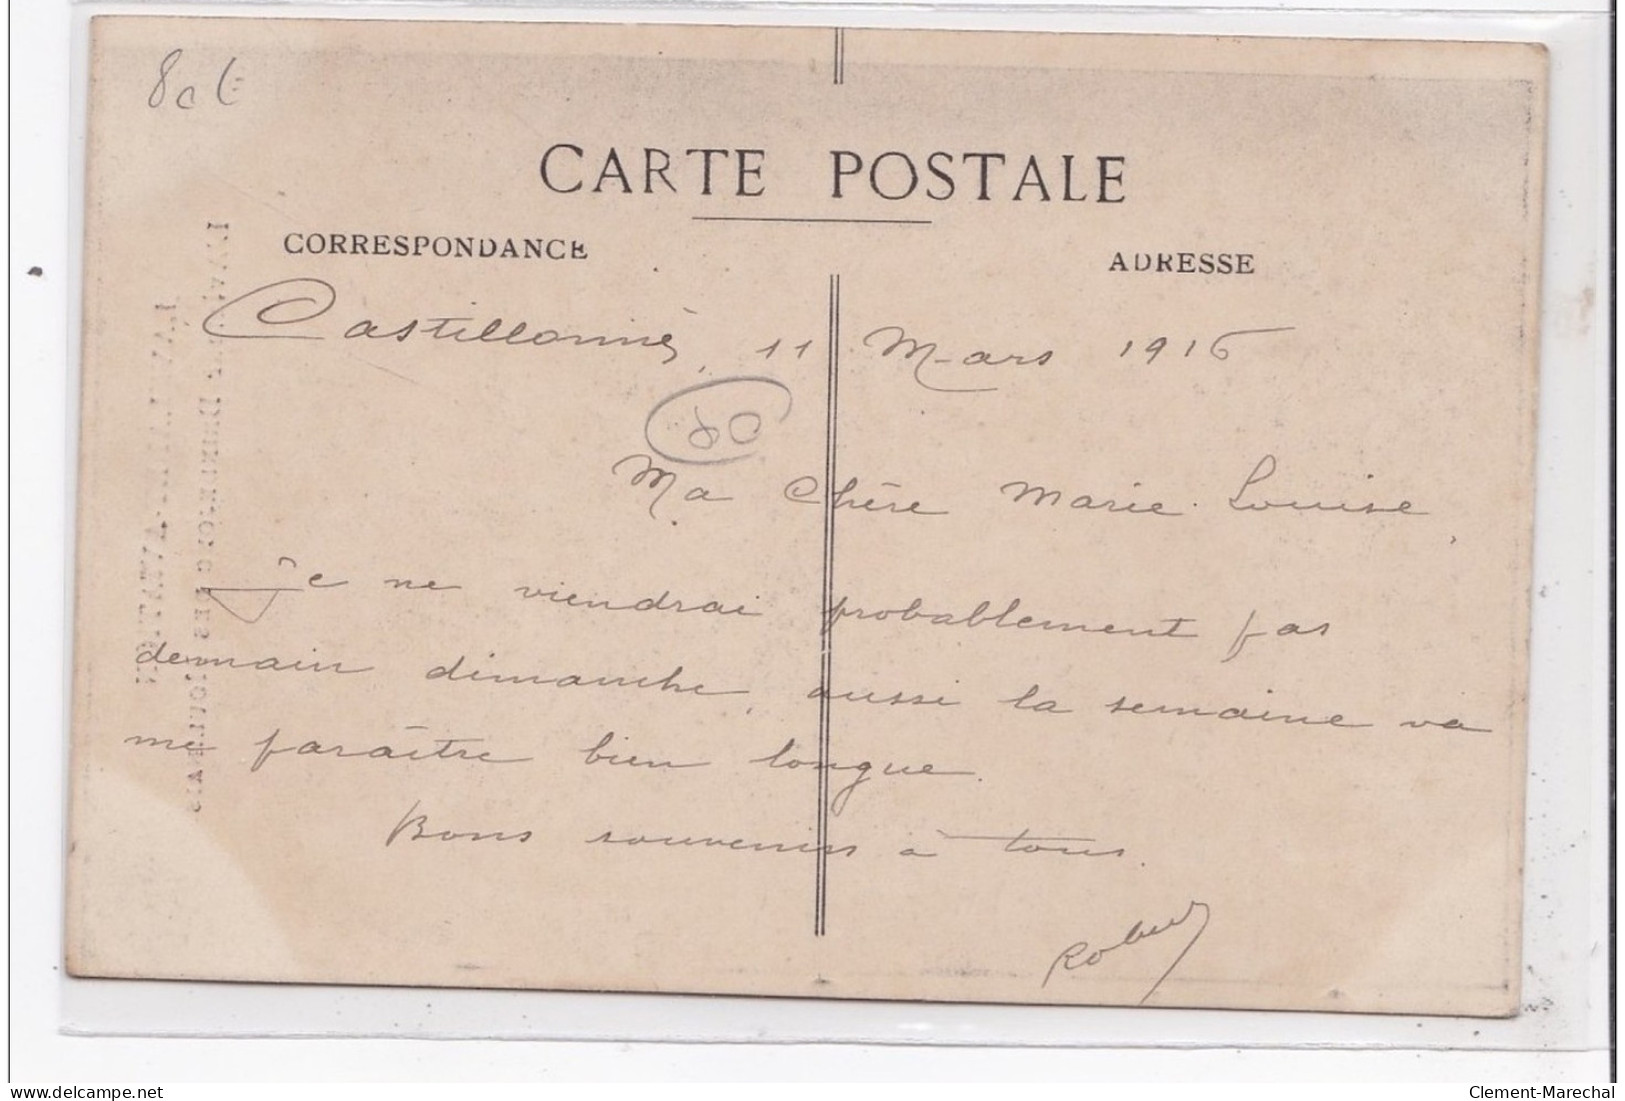 80 €
CARTE POSTALE
CORRESPONDANCE
ADRESSE
Castillonnès, 11 Mars 1916
80
Ma Chère Marie-Louise,
Je ne viendrai probablement pas
demain dimanche, aussi la semaine va
me paraître bien longue.
Bons souvenirs à tous.
Robert
delcampe.net
Clement-Marechal